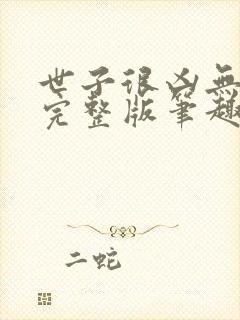 世子很凶無
完整版筆趣
二蛇